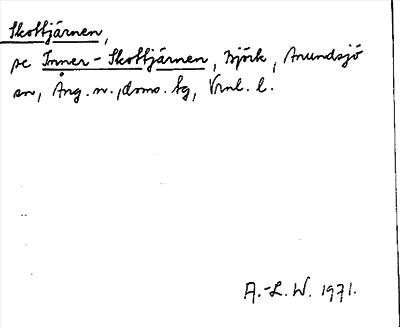 Skottjärnen,
se Inner-Skottjärnen, Björk, Anundsjö
sn, Ång. n., doms. hg, Vrnl. l.
A.-L. W. 1971.